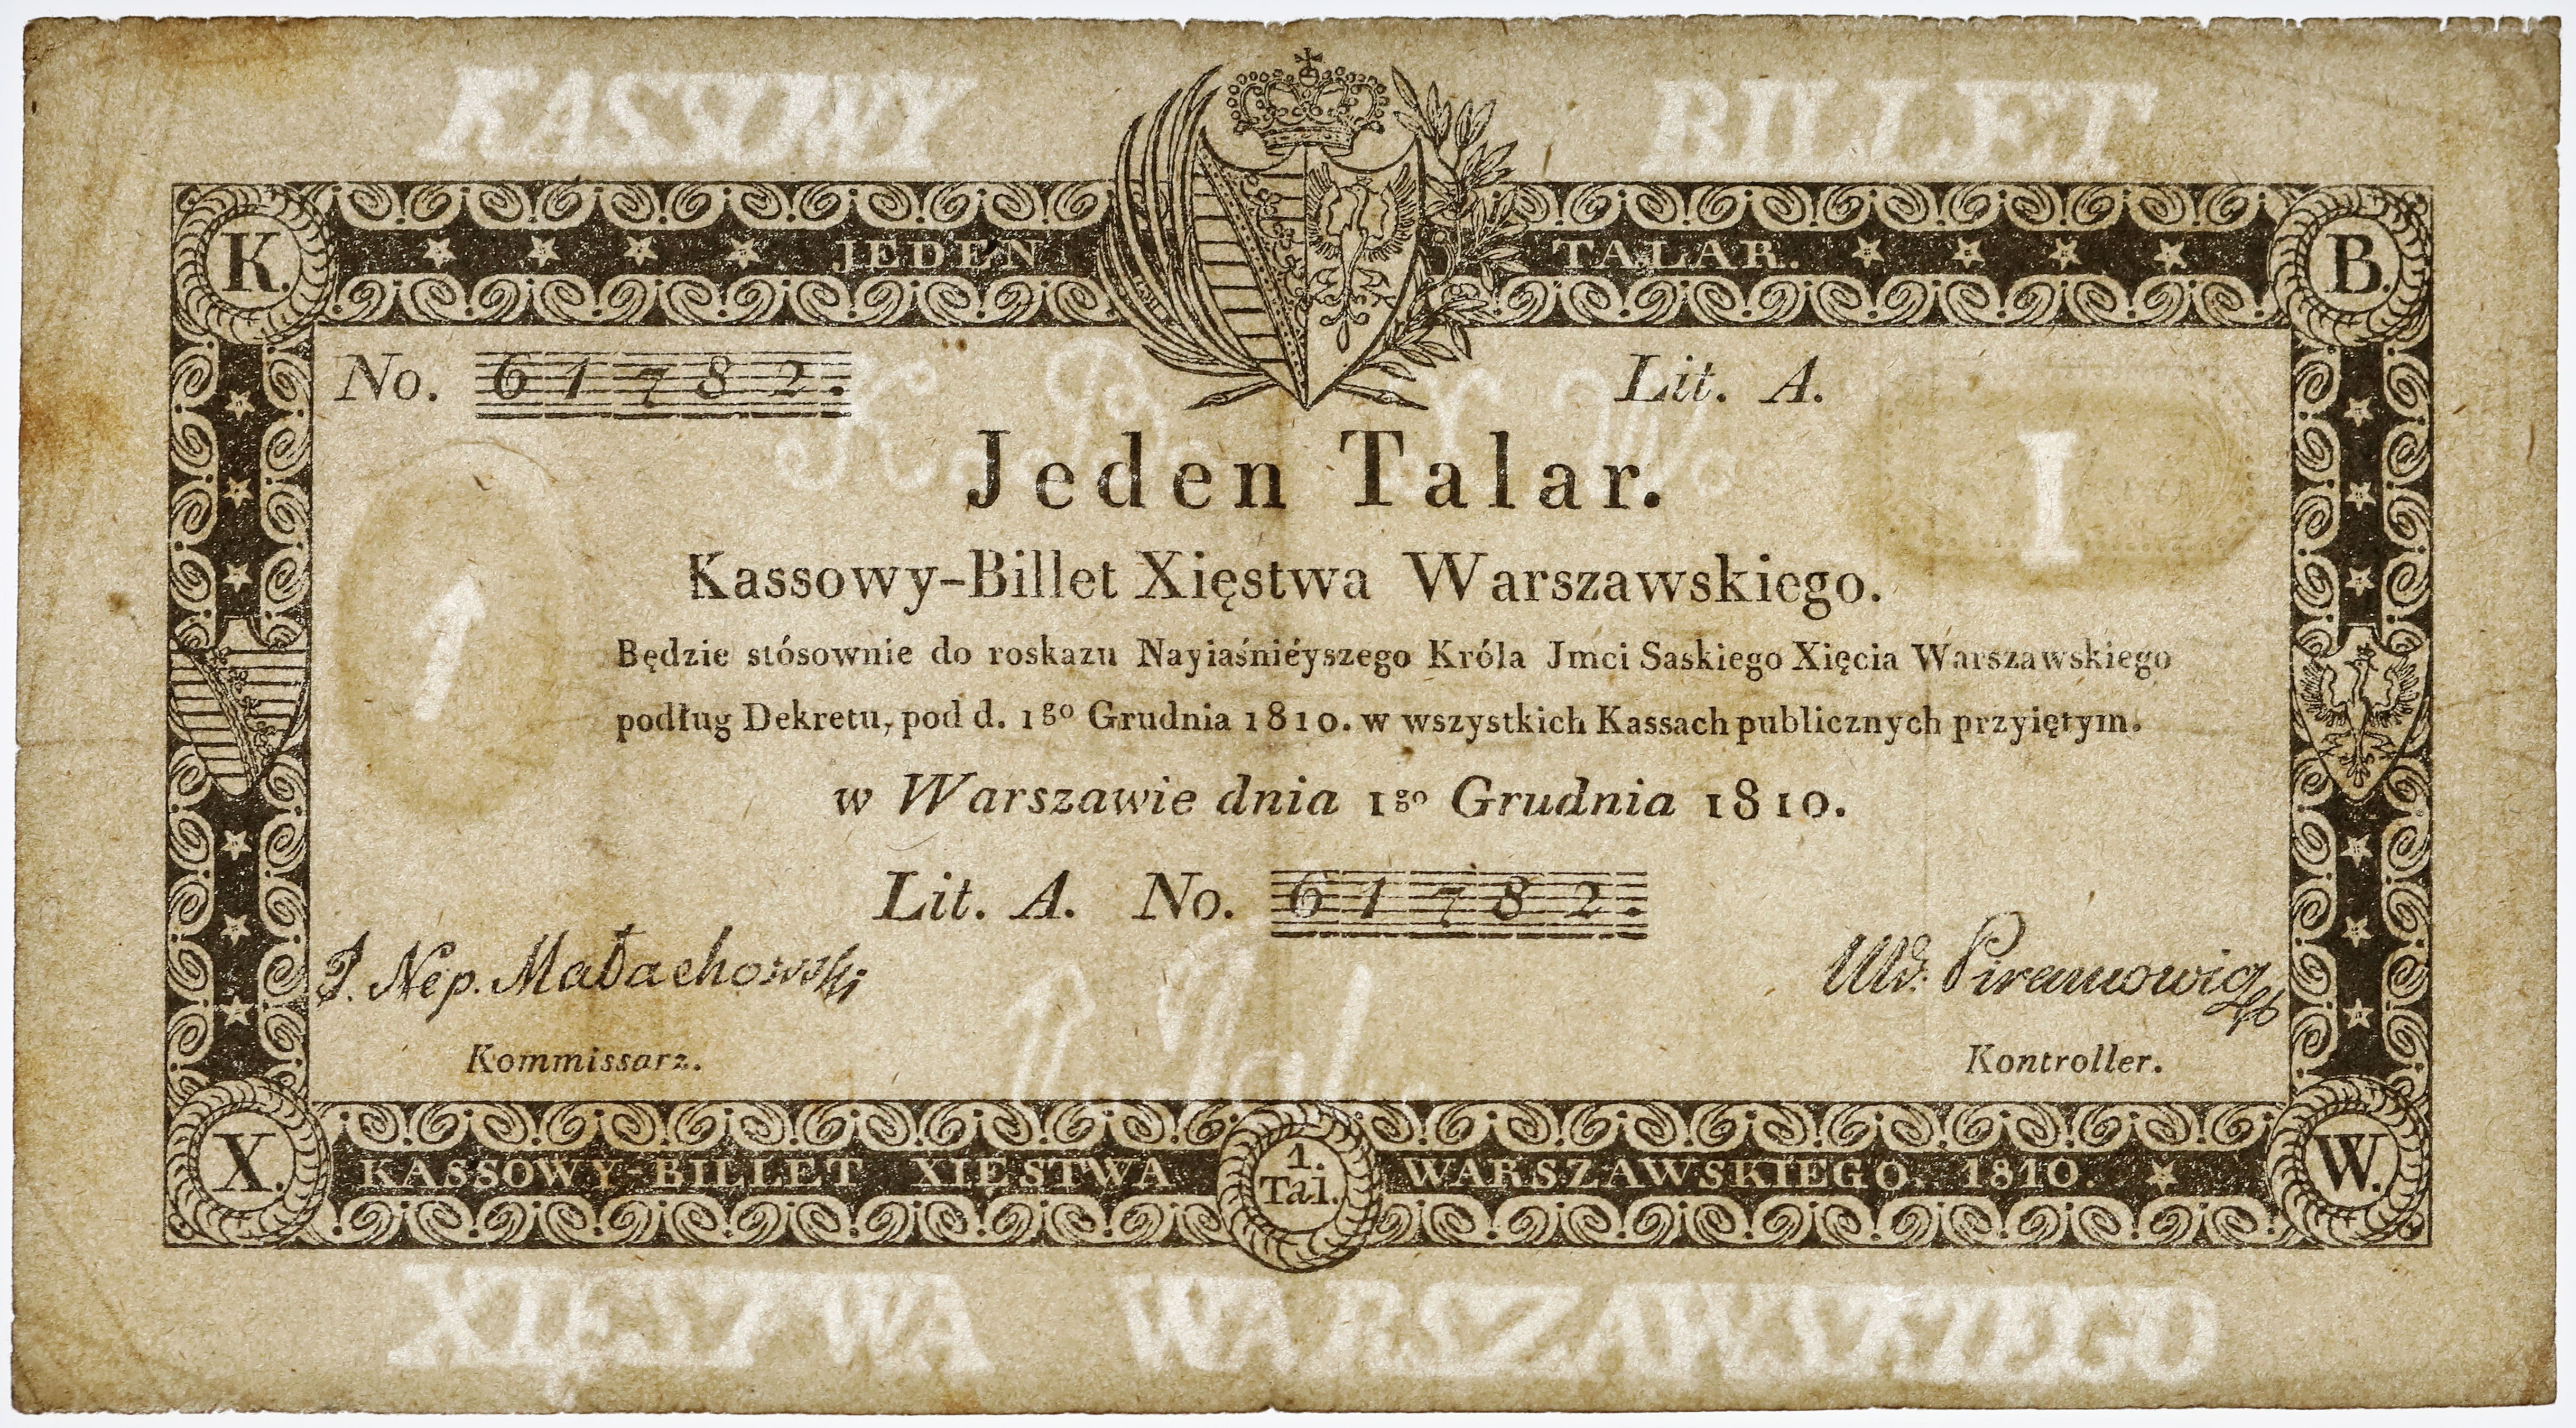 KASSOWY BILLET
K. B.
JEDEN TALAR.
No. 61782. Lit. A.
K. B. X. W.
Jeden Talar.
1 I
Kassowy-Billet Xięstwa Warszawskiego.
Będzie stósownie do roskazu Nayiaśniéyszego Króla Jmci Saskiego Xięcia Warszawskiego
podług Dekretu, pod d. 1go Grudnia 1810. w wszystkich Kassach publicznych przyiętym.
w Warszawie dnia 1go Grudnia 1810.
Lit. A. No. 61782.
J. Nep. Małachowski
Kommissarz. Kontroller.
X. W.
KASSOWY-BILLET XIĘSTWA 1. Tal. WARSZAWSKIEGO. 1810.
XIĘSTWA WARSZAWSKIEGO